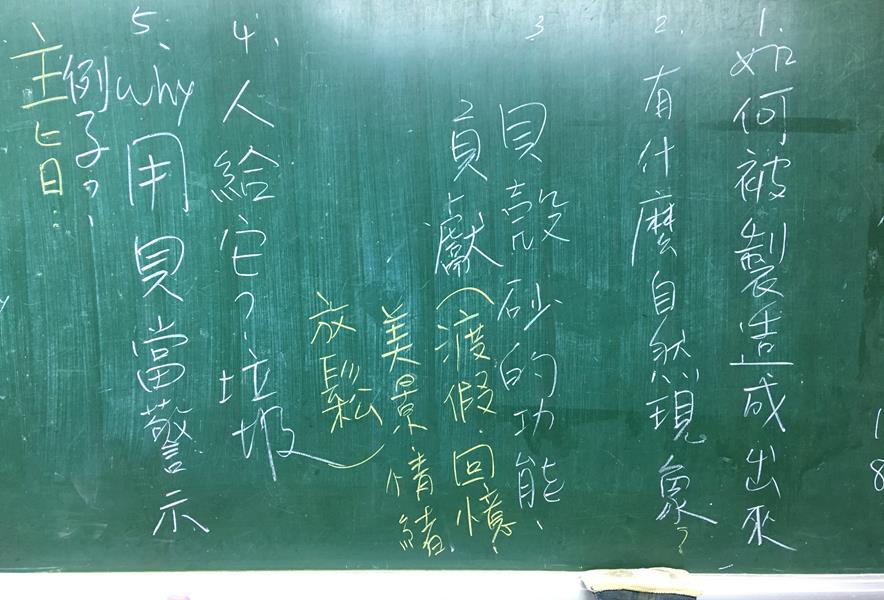 1. 如何被製造成出來
2. 有什麼自然現象?
3 貝殼砂的功能、
貢獻(渡假.回憶.
美景 情緒
放鬆)
4. 人給它?、垃圾
5. why 用貝當警示
例子?、
主旨: